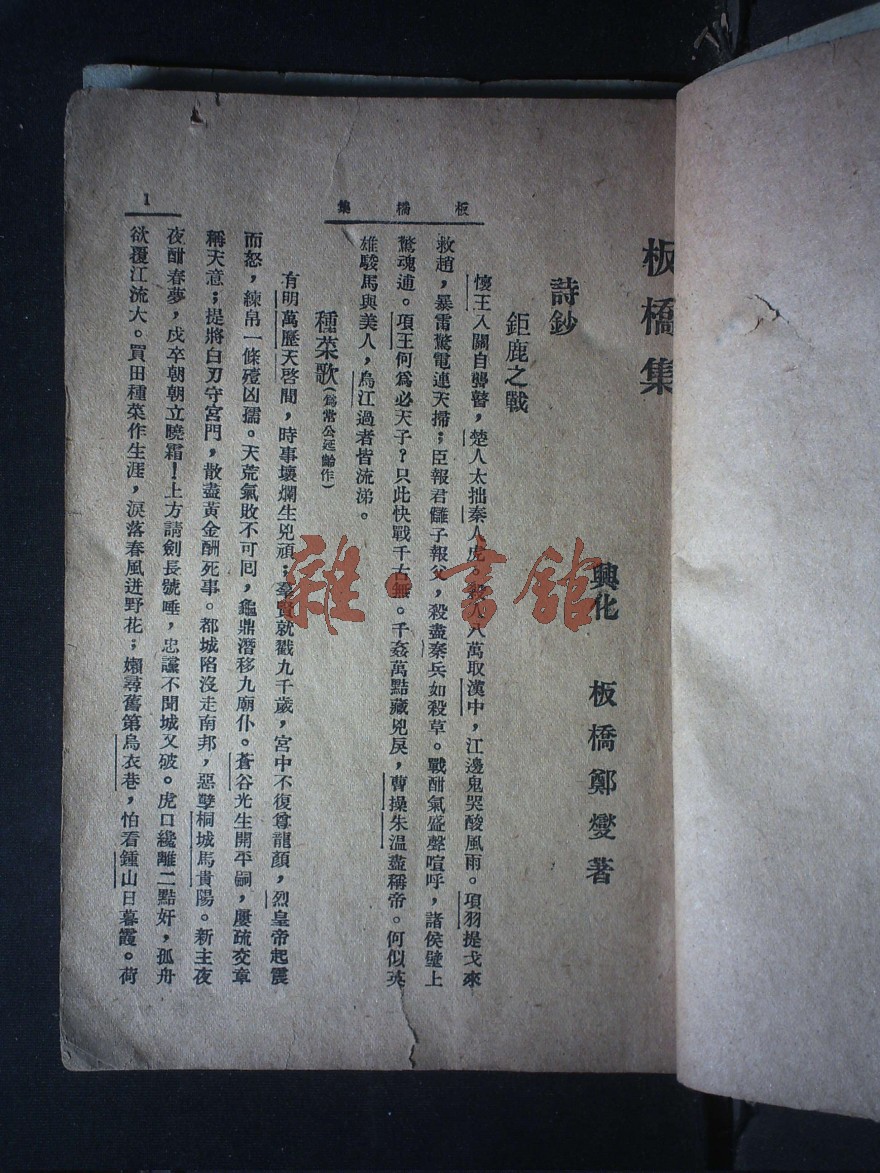 板橋集
興化 板橋鄭燮著
詩鈔
鉅鹿之戰
板橋集
懷王入關自聾瞽,楚人太拙秦人虎。殺人八萬取漢中,江邊鬼哭酸風雨。項羽提戈來
救趙,暴雷驚電連天掃;臣報君讎子報父,殺盡秦兵如殺草。戰酣氣盛聲喧呼,諸侯壁上
驚魂逋。項王何爲必天子?只此快戰千古無。千姦萬點藏兇戾,曹操朱溫盡稱帝。何似英
雄駿馬與美人,烏江過者皆流涕。
種菜歌(爲常公延齡作)
有明萬歷天啓間,時事壞爛生兇頑;羣賢就戮九千歲,宮中不復尊龍顏,烈皇帝起震
而怒,練帛一條殪凶孺。天荒氣敗不可囘,龜鼎潛移九廟仆。蒼谷光生開平嗣,屢疏交章
稱天意;提將白刃守宮門,散盡黃金酬死事。都城陷沒走南邦,惡孽桐城馬貴陽。新主夜
夜酣春夢,戍卒朝朝立曉霜!上方請劍長號唾,忠讜不聞城又破。虎口纔離二點奸,孤舟
欲覆江流大。買田種菜作生涯,淚落春風迸野花;嬾尋舊第烏衣巷,怕看鍾山日暮霞。荷
1
雜·書館